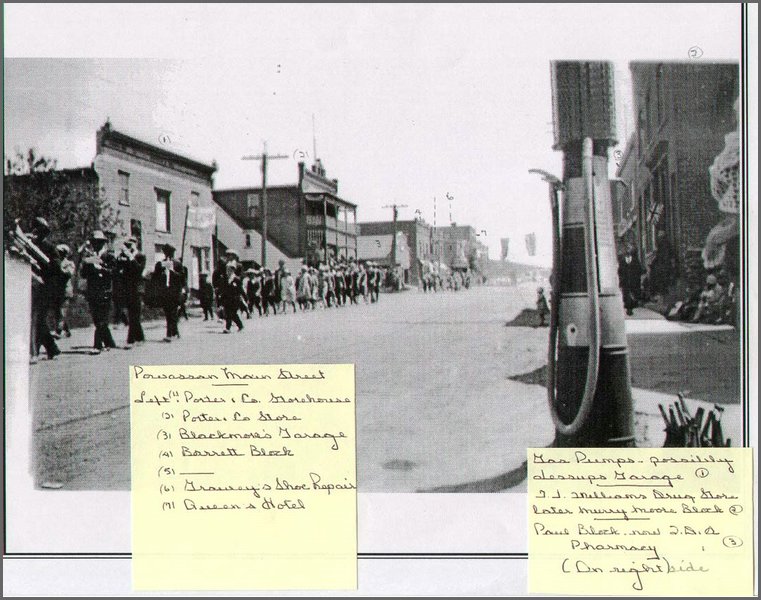 Powassan Main Street
Left (1) Porter & Co. Storehouse
(2) Porter & Co Store
(3) Blackmore's Garage
(4) Barrett Block
(5) ——
(6) Shoe Repair
(7) Queen's Hotel
Gas Pumps - possibly
Jessups Garage (1)
T.J. Williams Drug Store
later Murry Moore Block (2)
Paul Block - now I.D.A
Pharmacy (3)
(On right) side
(1)
(2)
3
4
6
7
(2)
(3)